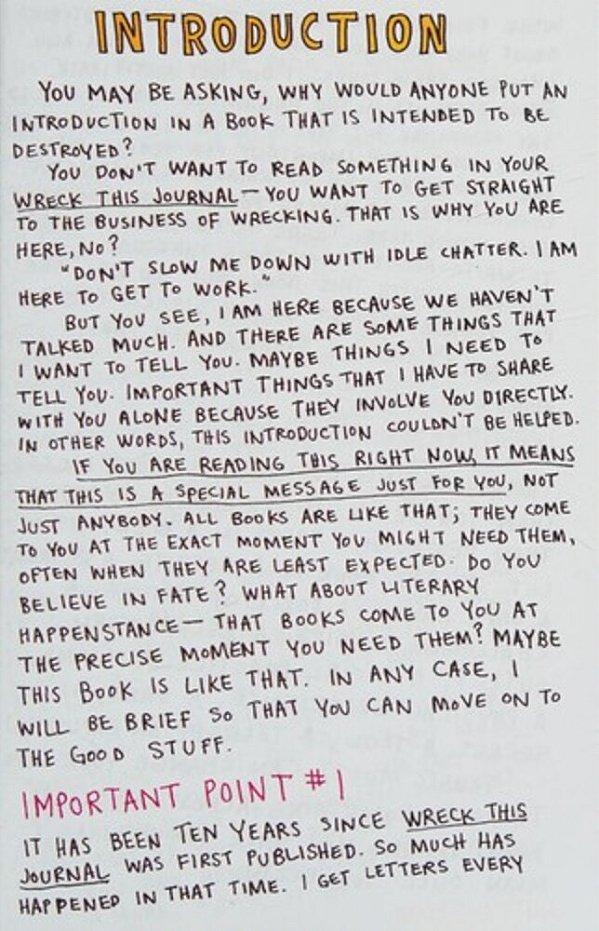 INTRODUCTION
YOU MAY BE ASKING, WHY WOULD ANYONE PUT AN
INTRODUCTION IN A BOOK THAT IS INTENDED TO BE
DESTROYED?
YOU DON'T WANT TO READ SOMETHING IN YOUR
WRECK THIS JOURNAL—YOU WANT TO GET STRAIGHT
TO THE BUSINESS OF WRECKING. THAT IS WHY YOU ARE
HERE, NO?
"DON'T SLOW ME DOWN WITH IDLE CHATTER. I AM
HERE TO GET TO WORK."
BUT YOU SEE, I AM HERE BECAUSE WE HAVEN'T
TALKED MUCH. AND THERE ARE SOME THINGS THAT
I WANT TO TELL YOU. MAYBE THINGS I NEED TO
TELL YOU. IMPORTANT THINGS THAT I HAVE TO SHARE
WITH YOU ALONE BECAUSE THEY INVOLVE YOU DIRECTLY.
IN OTHER WORDS, THIS INTRODUCTION COULDN'T BE HELPED.
IF YOU ARE READING THIS RIGHT NOW, IT MEANS
THAT THIS IS A SPECIAL MESSAGE JUST FOR YOU, NOT
JUST ANYBODY. ALL BOOKS ARE LIKE THAT; THEY COME
TO YOU AT THE EXACT MOMENT YOU MIGHT NEED THEM,
OFTEN WHEN THEY ARE LEAST EXPECTED. DO YOU
BELIEVE IN FATE? WHAT ABOUT LITERARY
HAPPENSTANCE—THAT BOOKS COME TO YOU AT
THE PRECISE MOMENT YOU NEED THEM? MAYBE
THIS BOOK IS LIKE THAT. IN ANY CASE, I
WILL BE BRIEF SO THAT YOU CAN MOVE ON TO
THE GOOD STUFF.
IMPORTANT POINT #1
IT HAS BEEN TEN YEARS SINCE WRECK THIS
JOURNAL WAS FIRST PUBLISHED. SO MUCH HAS
HAPPENED IN THAT TIME. I GET LETTERS EVERY